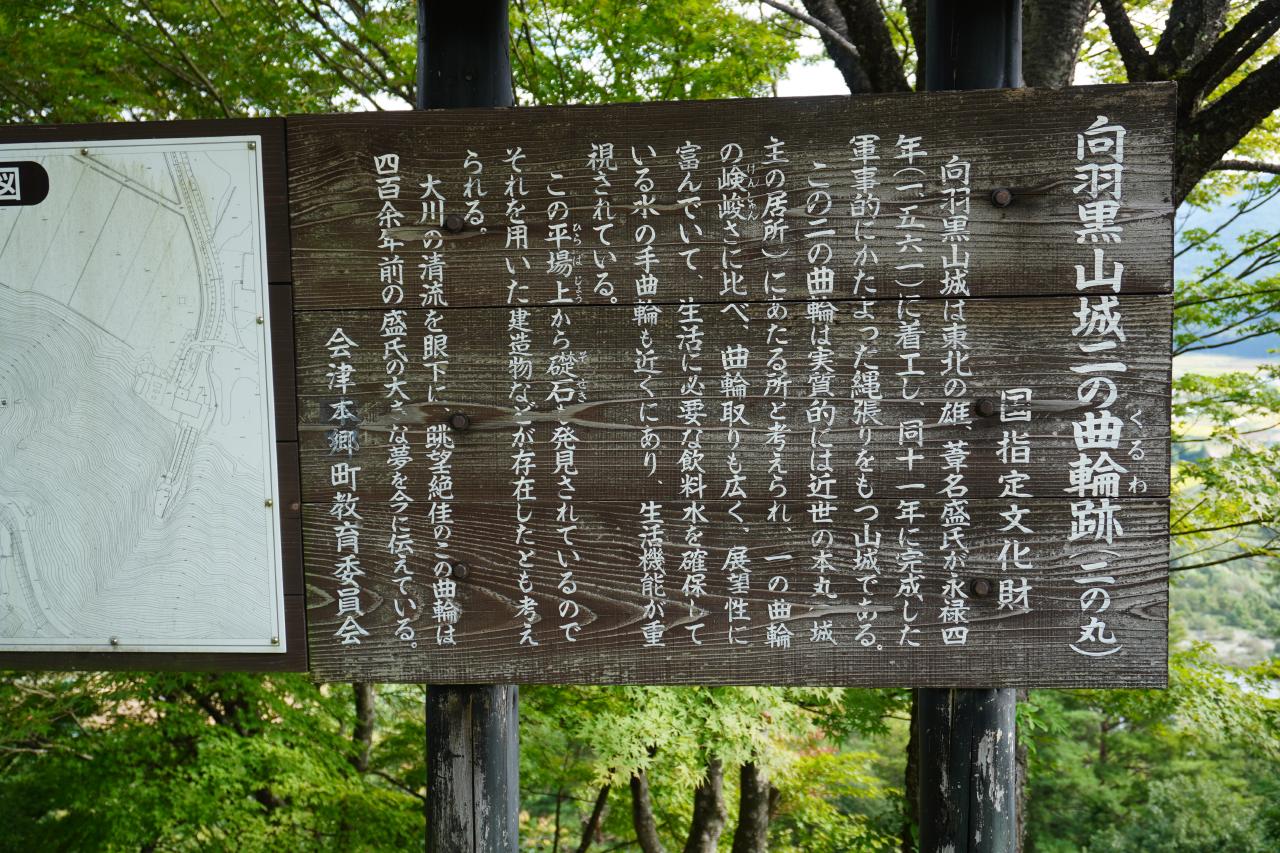 向羽黒山城二の曲輪跡(二の丸)
くるわ
国指定文化財
向羽黒山城は東北の雄、葦名盛氏が永禄四
年(一五六一)に着工し、同十一年に完成した
軍事的にかたよった縄張りをもつ山城である。
この二の曲輪は実質的には近世の本丸(城
主の居所)にあたる所と考えられ、一の曲輪
の険峻さに比べ、曲輪取りも広く、展望性に
けんしゅん
富んでいて、生活に必要な飲料水を確保して
いる水の手曲輪も近くにあり、生活機能が重
視されている。
この平場上から礎石も発見されているので
ひらばじょう
そせき
それを用いた建造物などが存在したとも考え
られる。
大川の清流を眼下に、眺望絶佳のこの曲輪は
四百余年前の盛氏の大きな夢を今に伝えている。
会津本郷町教育委員会
図